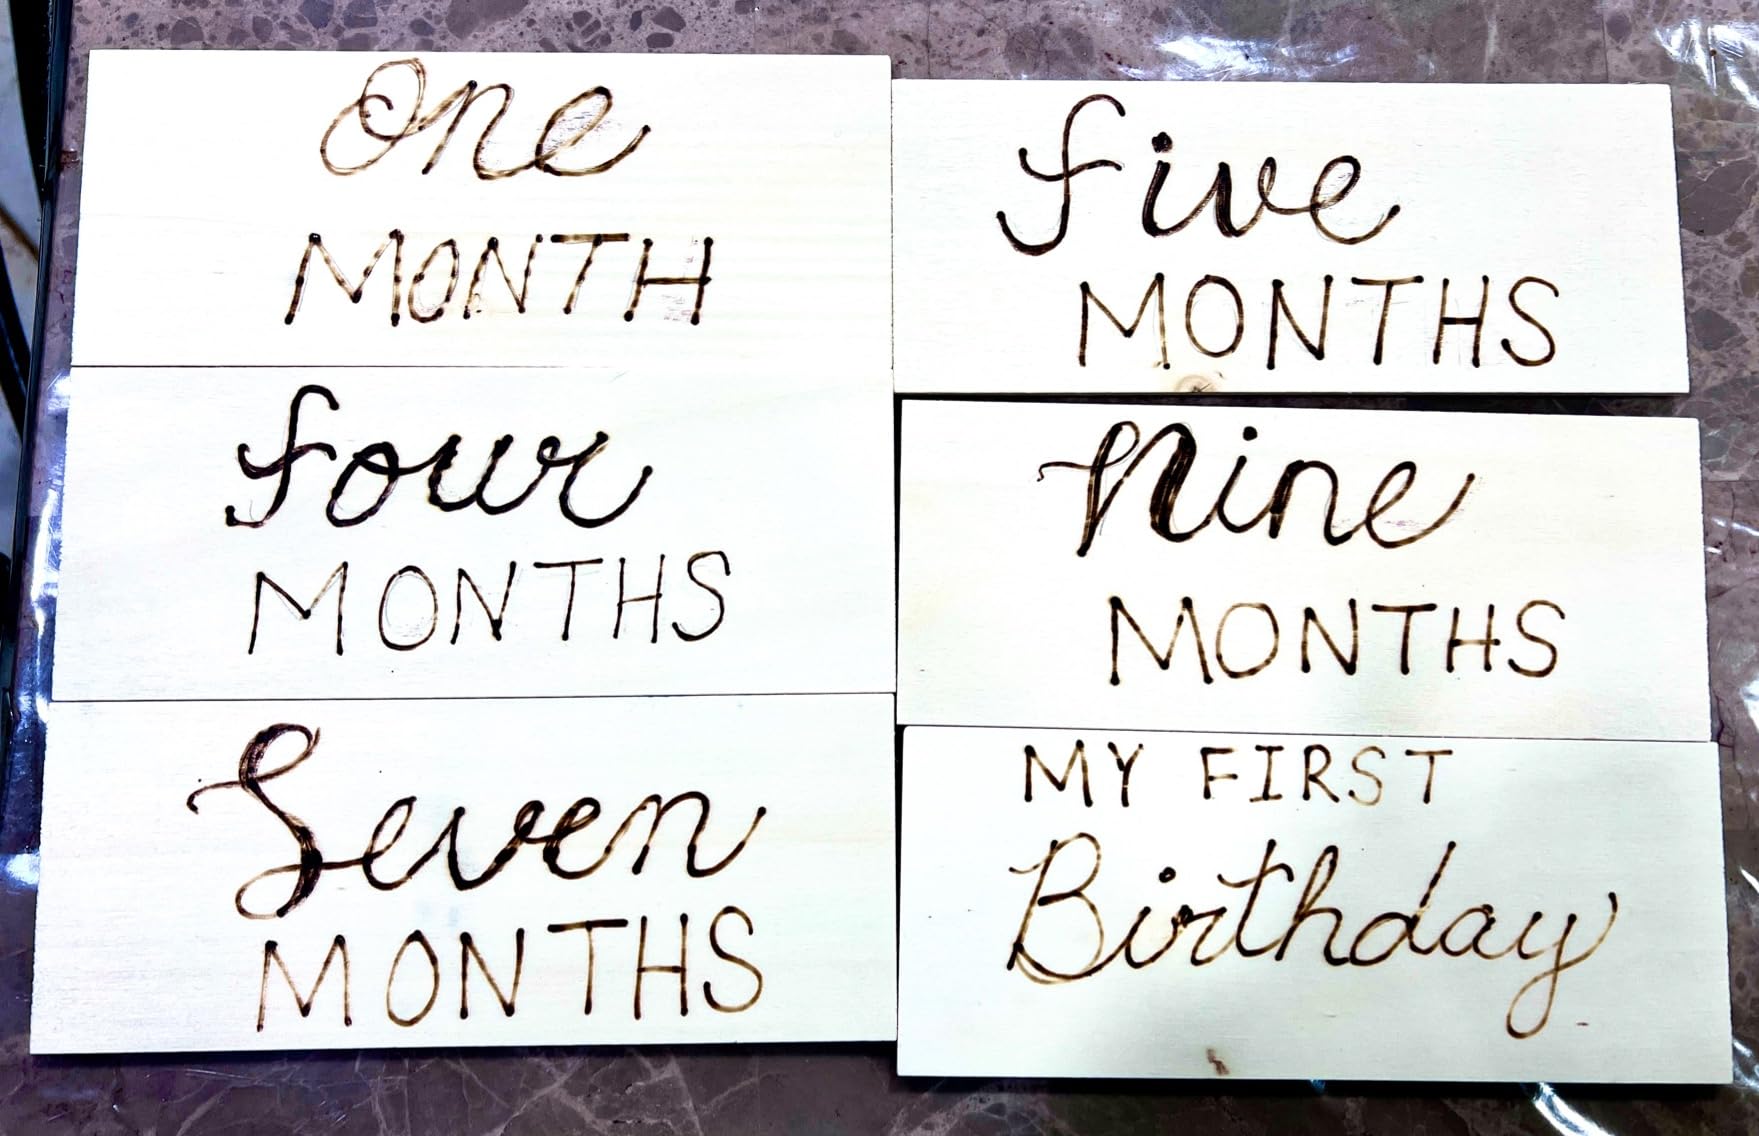 One
MONTH
four
MONTHS
Seven
MONTHS
five
MONTHS
Nine
MONTHS
MY FIRST
Birthday